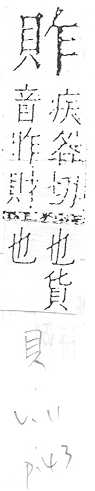 疾各切也貨
音昨財也
貝
v. 11
p. 43